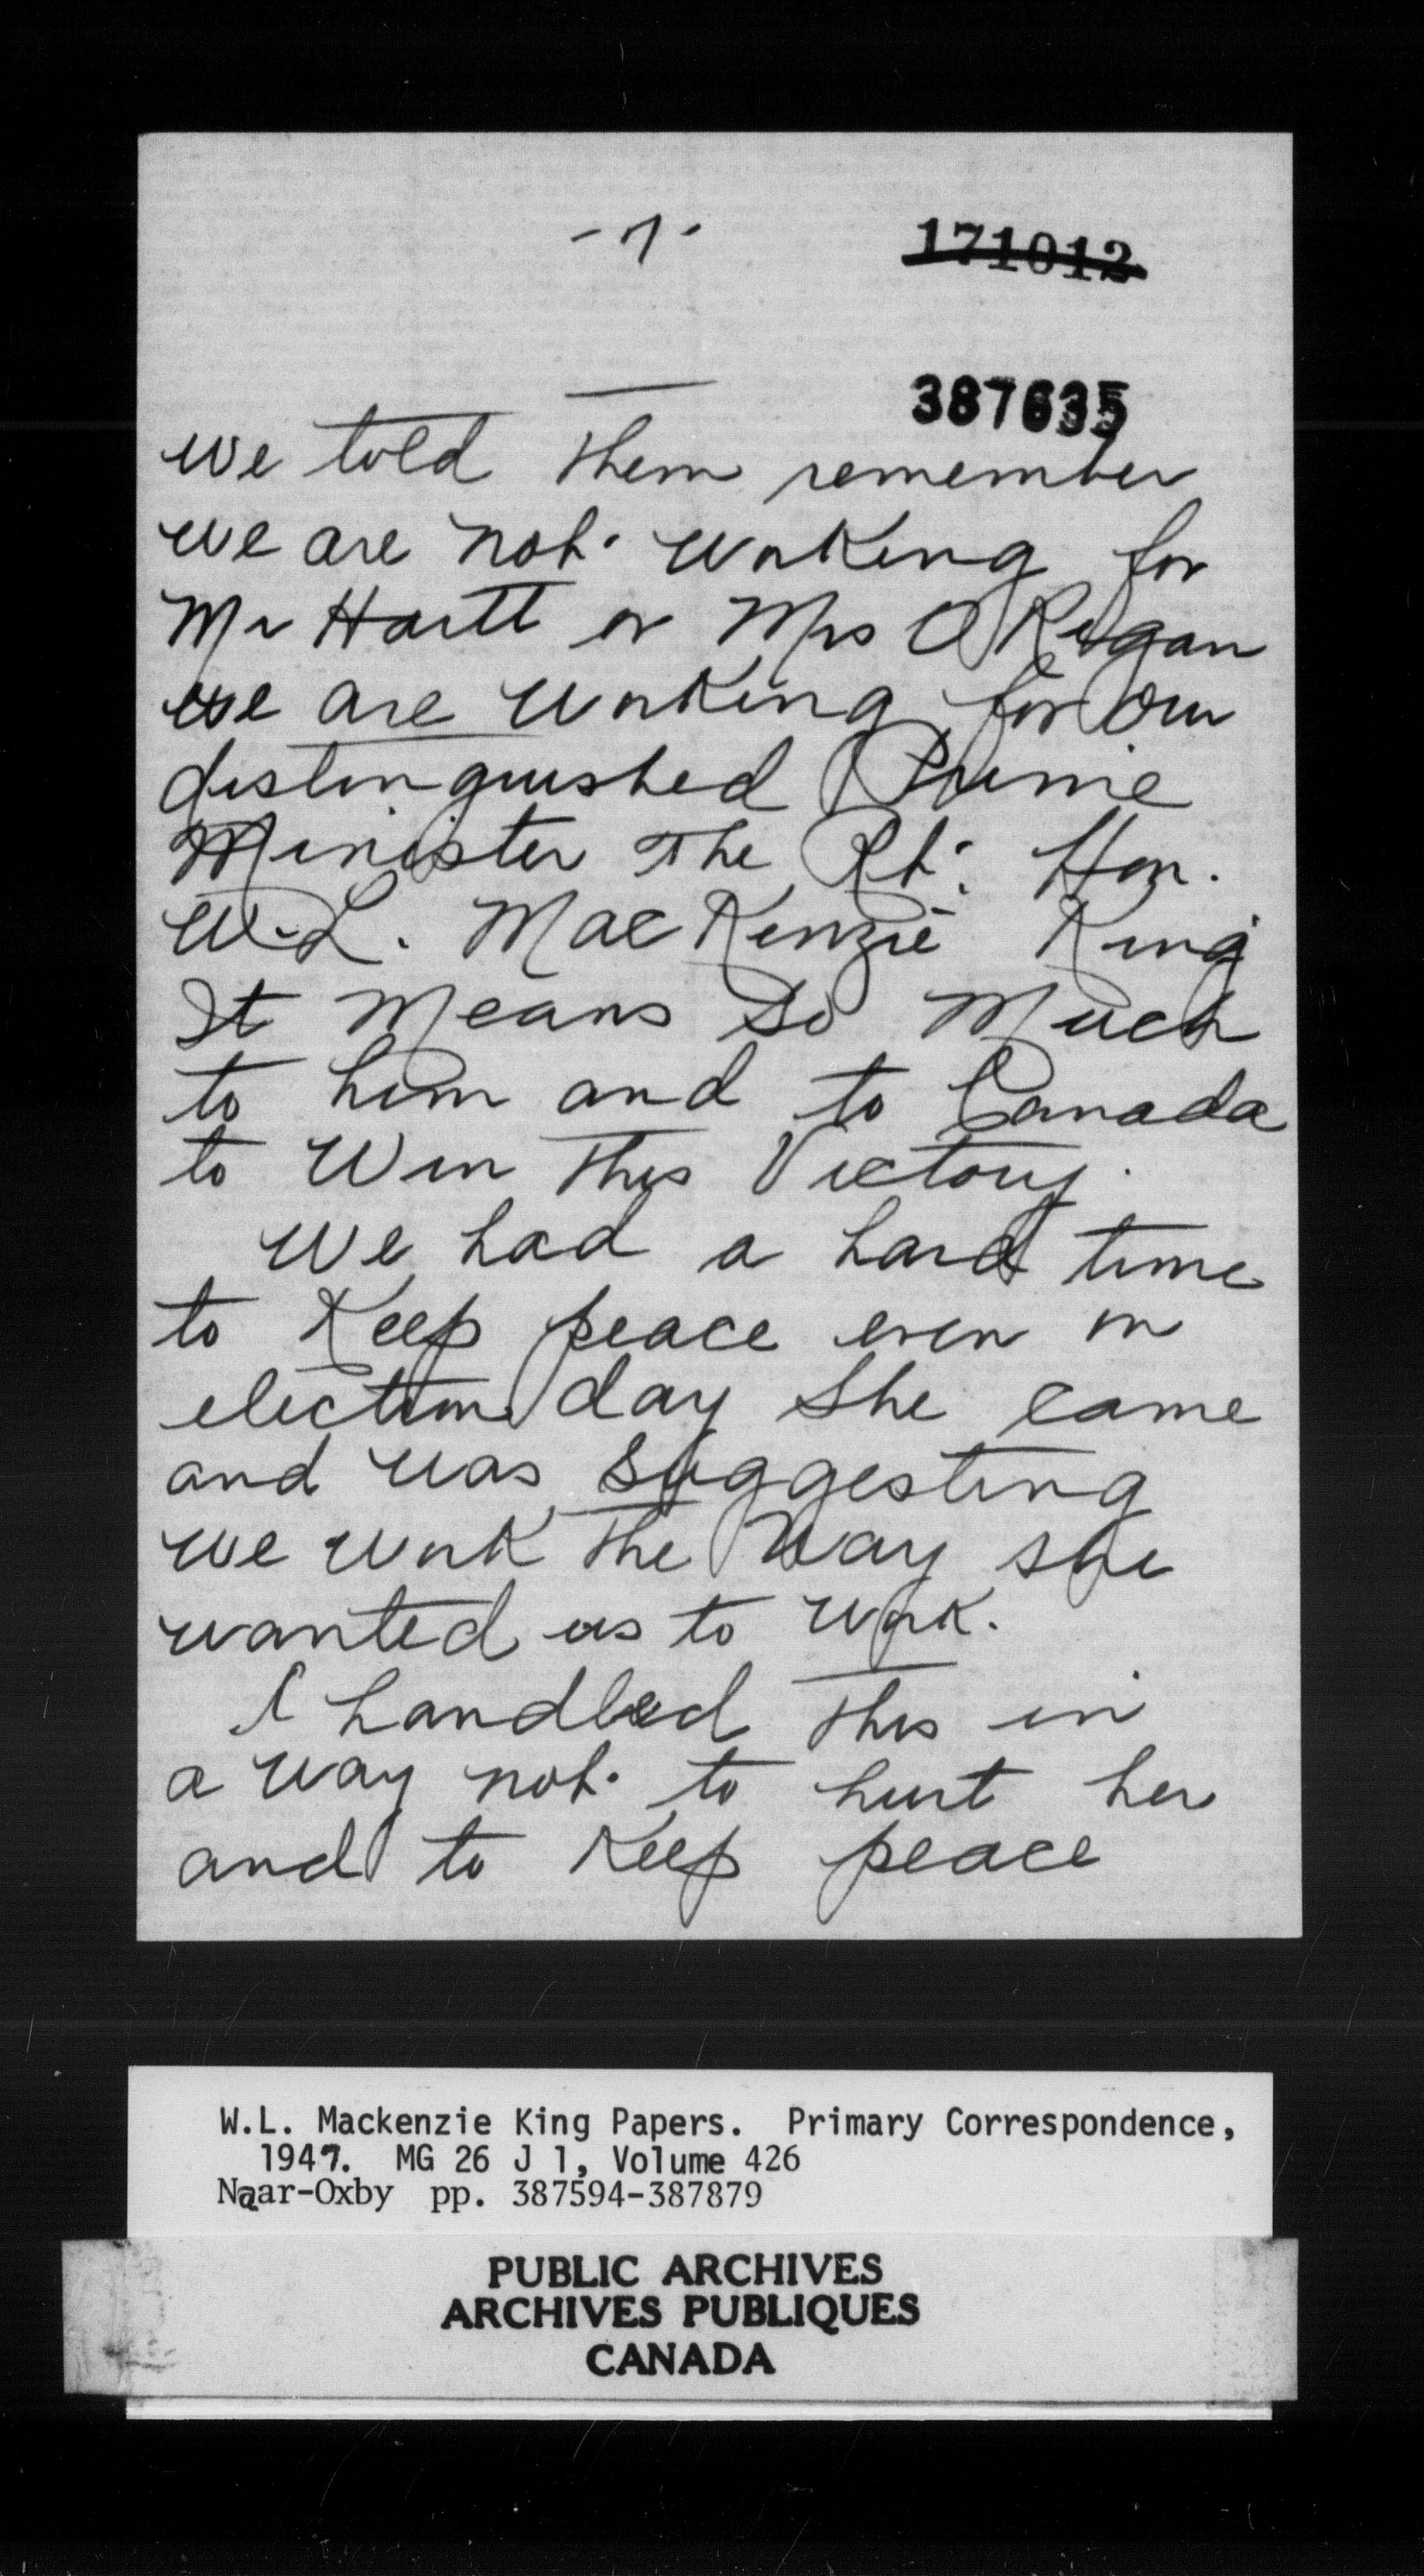 -7-
171012
387635
we told them remember
we are not working for
Mr Hartt or Mrs O Regan
we are working for our
distinguished Prime
Minister The Rt: Hon.
W.L. MacKenzie King
It Means So Much
to him and to Canada
to Win This Victory.
We had a hard time
to Keep peace even on
election day She came
and was Suggesting
we work the Way she
wanted us to work.
I handled This in
a way not to hurt her
and to Keep peace
W.L. Mackenzie King Papers. Primary Correspondence,
1947. MG 26 J 1, Volume 426
Naar-Oxby pp. 387594-387879
PUBLIC ARCHIVES
ARCHIVES PUBLIQUES
CANADA